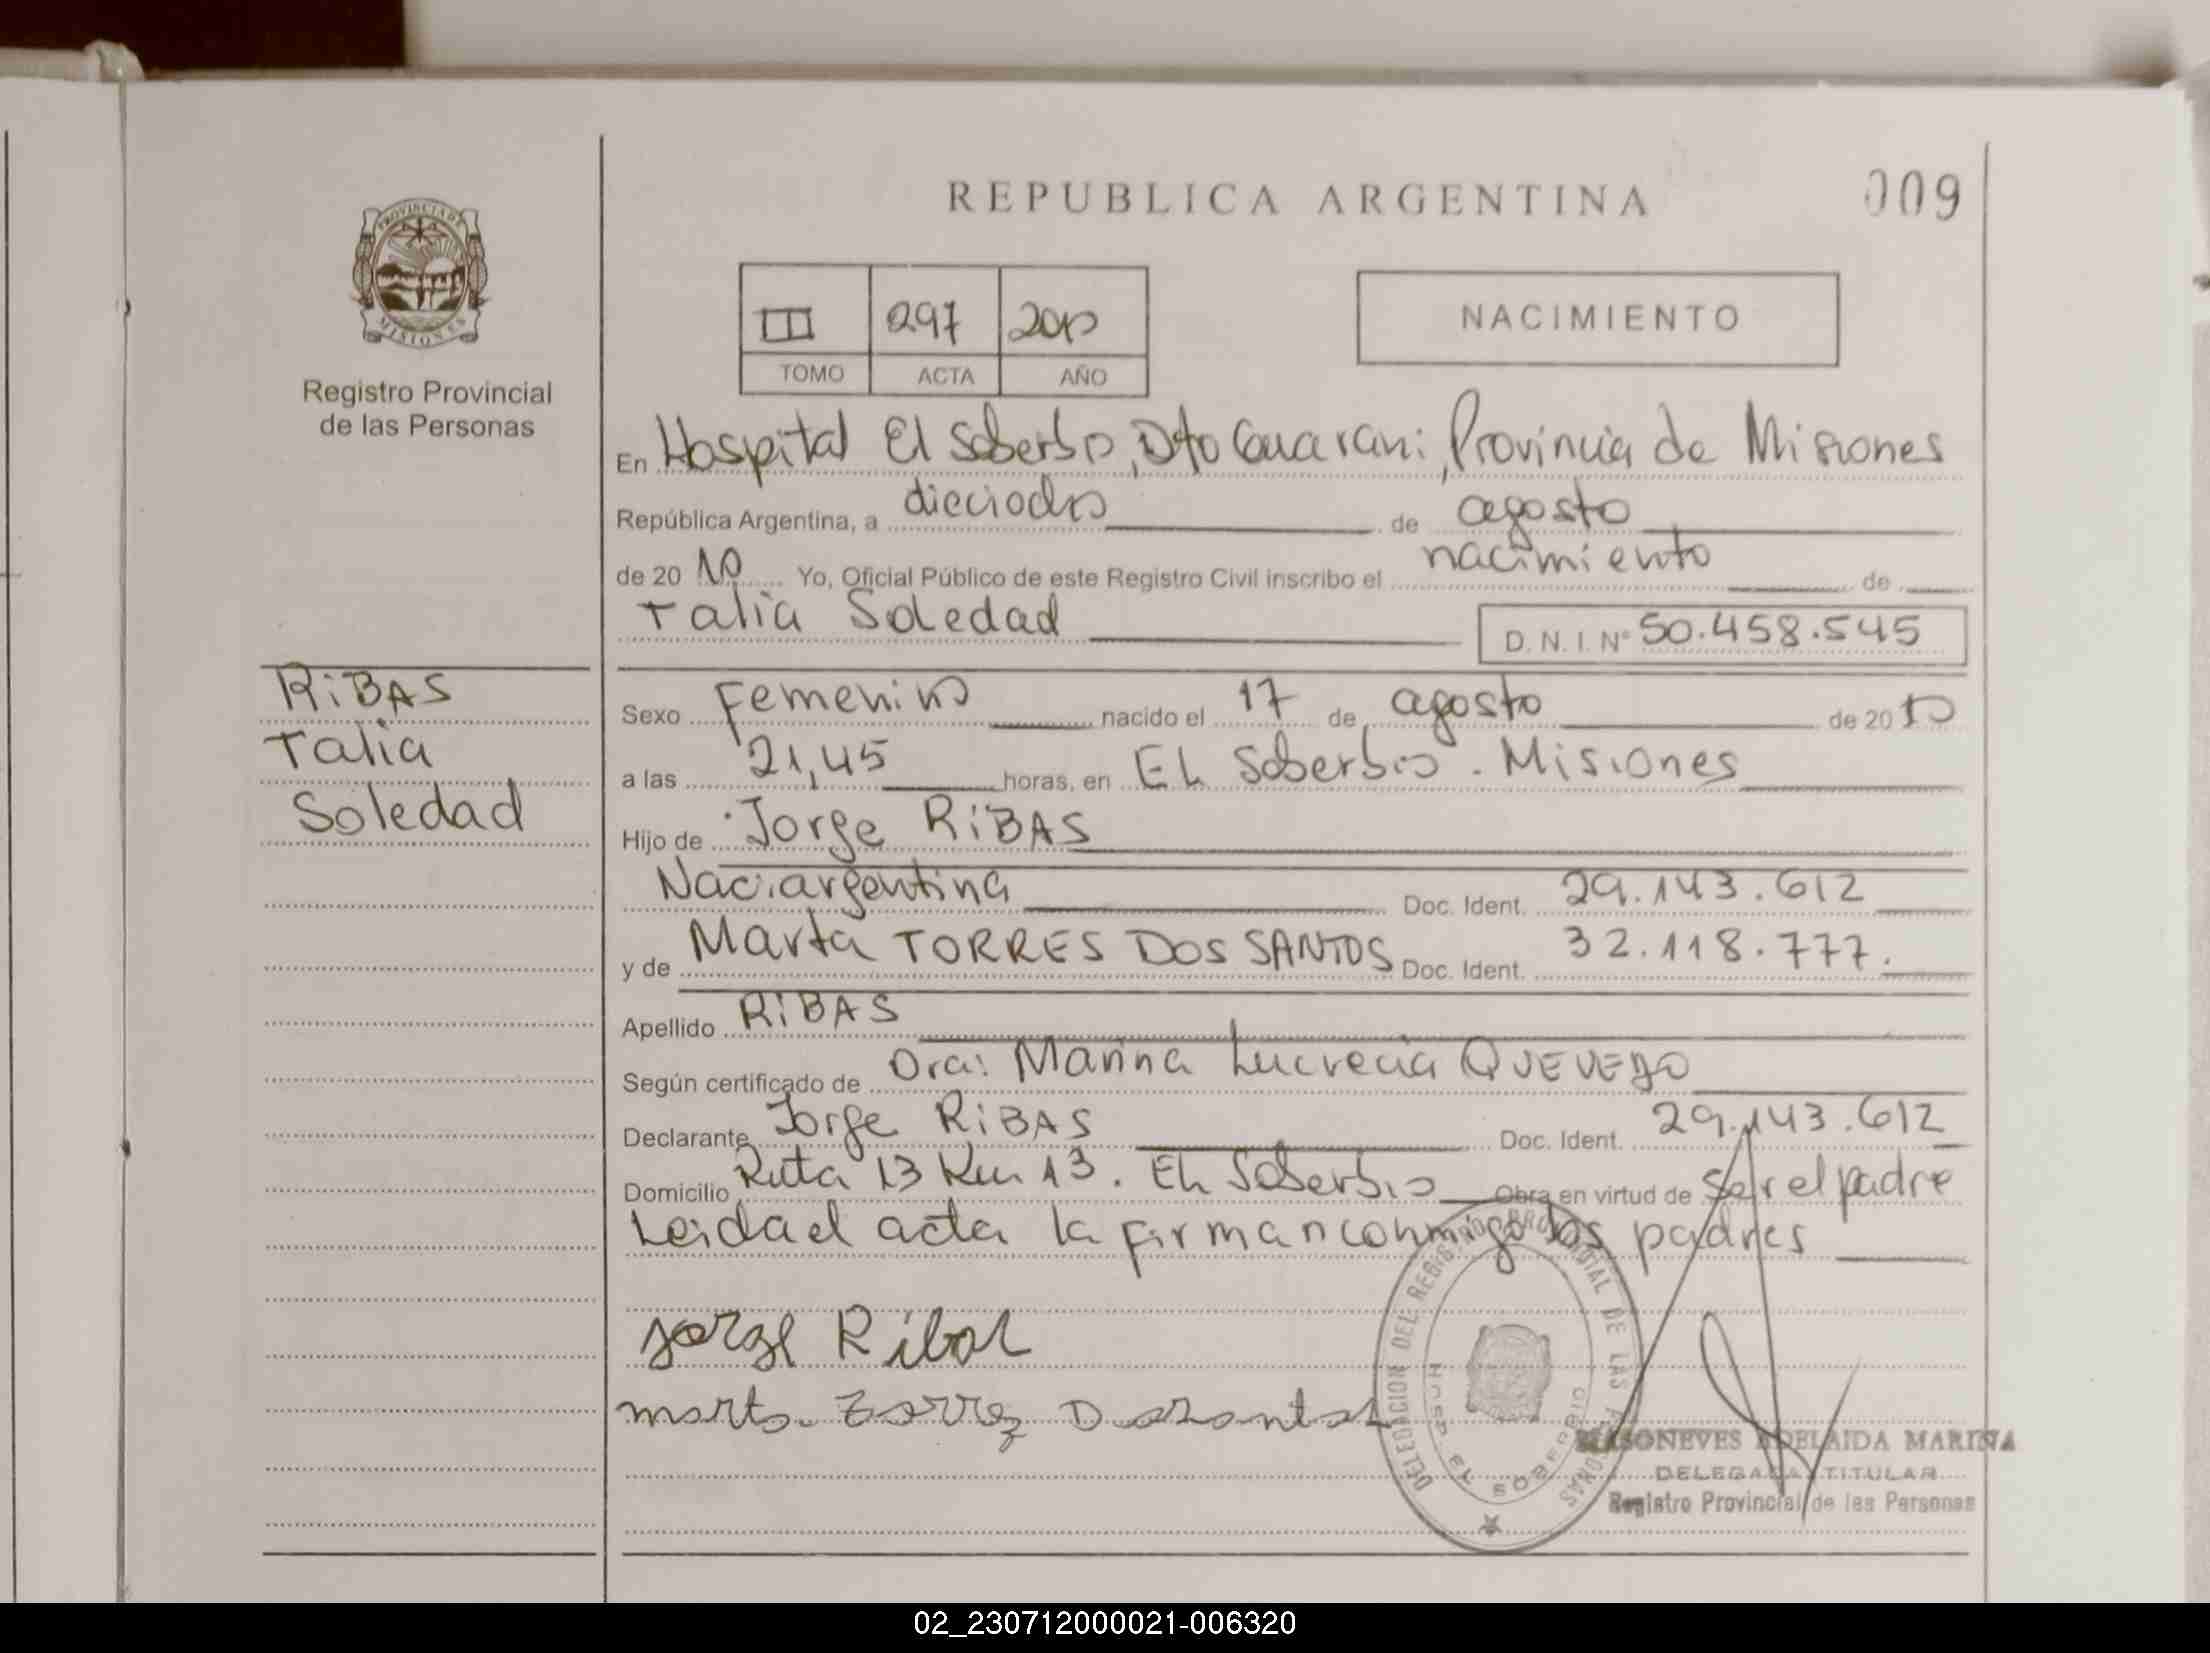 REPUBLICA ARGENTINA
009
PROVINCIA DE
MISIONES
Registro Provincial
de las Personas
III 297 2010
TOMO ACTA AÑO
NACIMIENTO
En Hospital El Soberbio, Dto Guarani, Provincia de Misiones
República Argentina, a dieciocho de agosto
de 20 10 Yo, Oficial Público de este Registro Civil inscribo el nacimiento de
Talia Soledad D. N. I. Nº 50.458.545
RiBAS
Talia
Soledad
Sexo Femenino nacido el 17 de agosto de 20 10
a las 21,45 horas, en EL Soberbio. Misiones
Hijo de Jorge RiBAS
Nac. argentina Doc. Ident. 29.143.612
y de Marta TORRES DOS SANTOS Doc. Ident. 32.118.777.
Apellido RiBAS
Según certificado de Dra: Marina Lucrecia QUEVEDO
Declarante Jorge RiBAS Doc. Ident. 29.143.612
Domicilio Ruta 13 Km 13. EL Soberbio Obra en virtud de ser el padre
Leida el acta la firman conmigo los padres
Jorge Ribas
DELEGACION DEL REGISTRO PROVINCIAL DE LAS PERSONAS
HOSP. EL SOBERBIO
ADELAIDA MARINA
DELEGADA TITULAR
Registro Provincial de las Personas
02_230712000021-006320